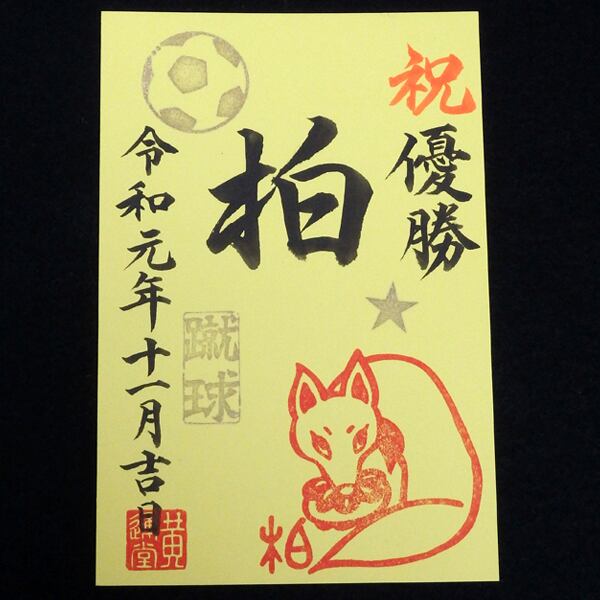 祝
優勝
柏
令和元年十一月吉日
蹴球
柏